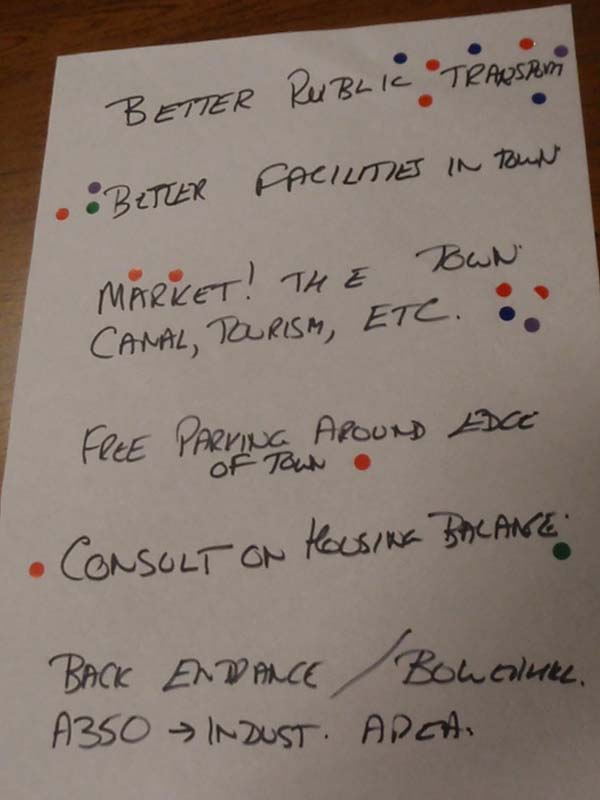 BETTER PUBLIC TRANSPORT
BETTER FACILITIES IN TOWN
MARKET! THE TOWN
CANAL, TOURISM, ETC.
FREE PARKING AROUND EDGE
OF TOWN
CONSULT ON HOUSING BALANCE
BACK ENTRANCE / BOWERHILL.
A350 → INDUST. AREA.